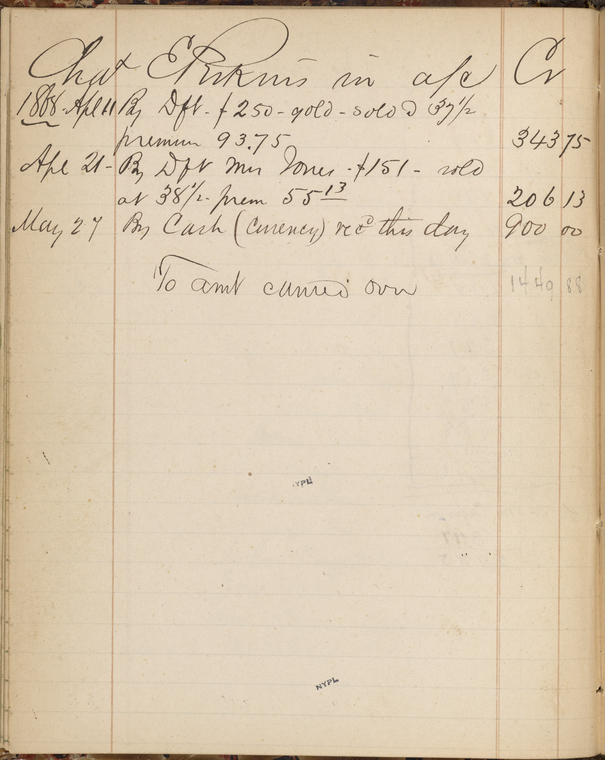 Chas E Perkins in a/c Cr
1868. Apl 11 By Dft. $250 - gold - sold @ 37½
premium 93.75 343 75
Apl 21 - By Dft Mrs Jones - $151 - sold
at 38½ prem 55 13 206 13
May 27 By Cash (currency) recd this day 900 00
To amt carried over 1449 88
NYPL
NYPL